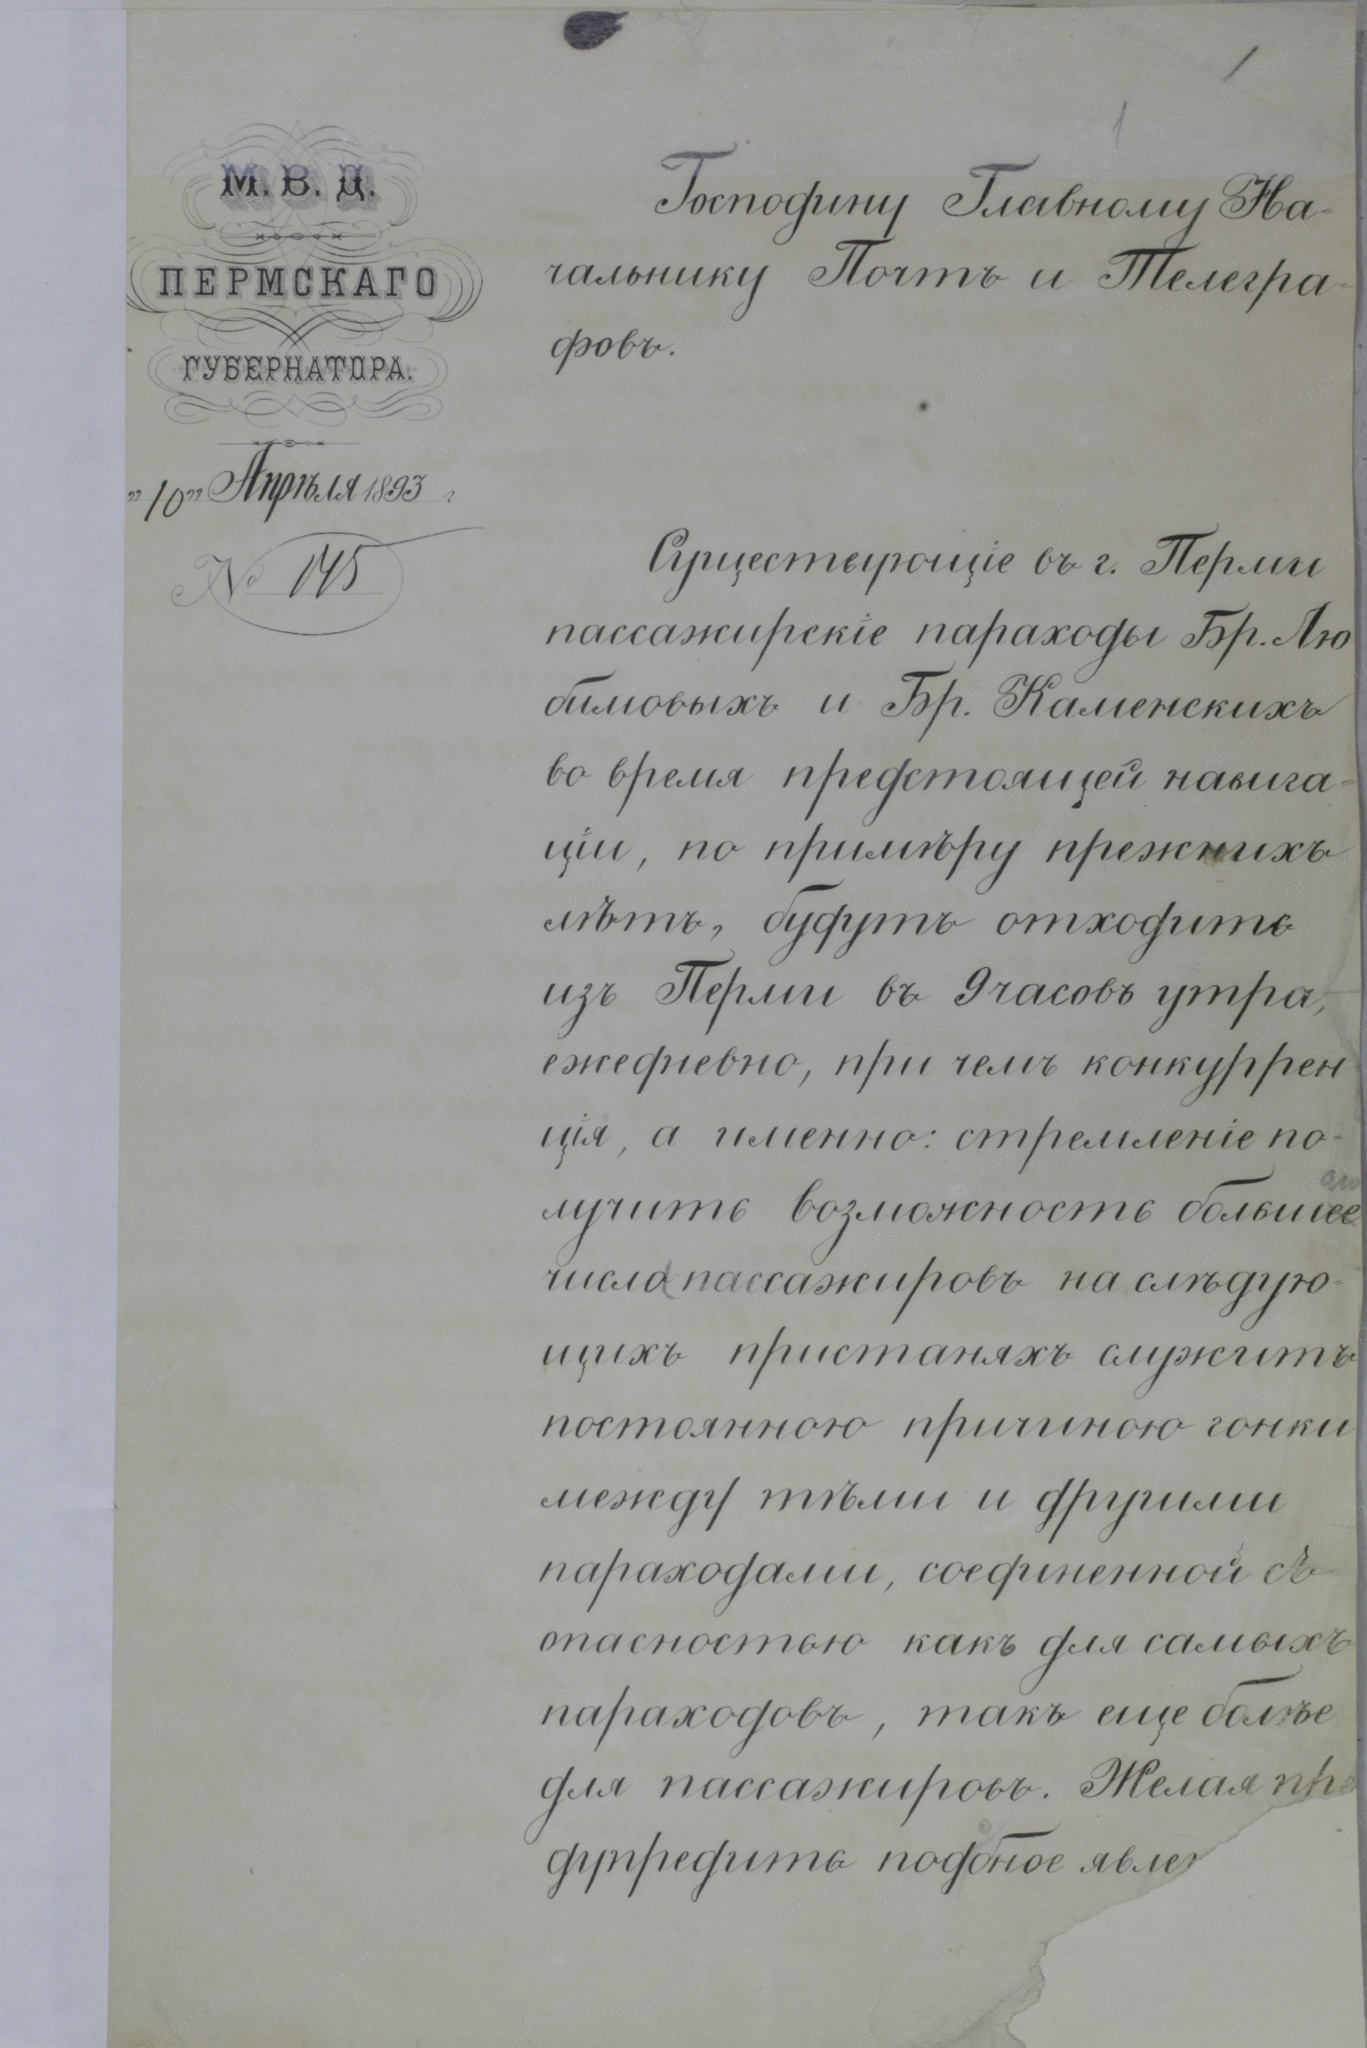 1
1
М. В. Д.
ПЕРМСКАГО
ГУБЕРНАТОРА.
„10" Апрѣля 1893 г
№ 145
Господину Главному На-
чальнику Почтъ и Телегра-
фовъ.
Существующіе въ г. Перми
пассажирскіе параходы Бр. Лю
бимовыхъ и Бр. Каменскихъ
во время предстоящей навига-
ціи, по примѣру прежнихъ
лѣтъ, будутъ отходить
изъ Перми въ 9 часовъ утра,
ежедневно, при чемъ конкуррен
ція, а именно: стремленіе по-
лучить возможность большее
число пассажировъ на слѣдую-
щихъ пристаняхъ служитъ
постоянною причиною гонки
между тѣми и другими
параходами, соединенной съ
опасностью какъ для самыхъ
параходовъ, такъ еще болѣе
для пассажировъ. Желая пре
дупредить подобное явлен